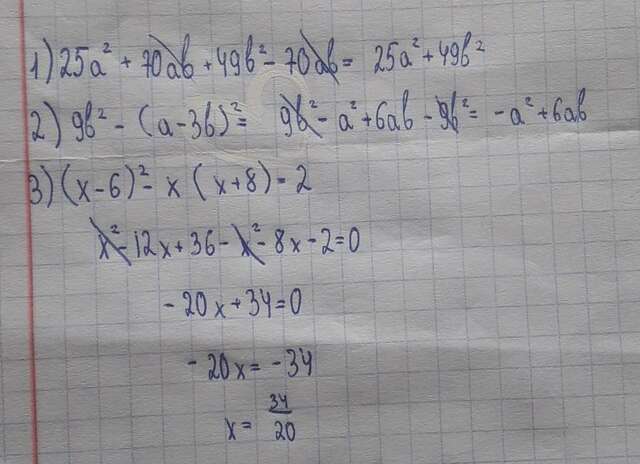 1) 25a² + 70ab + 49b² - 70ab = 25a² + 49b²
2) 9b² - (a - 3b)² = 9b² - a² + 6ab - 9b² = -a² + 6ab
3) (x - 6)² - x (x + 8) = 2
x² - 12x + 36 - x² - 8x - 2 = 0
- 20x + 34 = 0
- 20x = - 34
x = 34/20